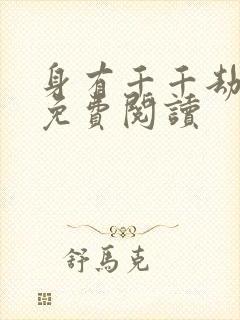 身有千千劫
免費閱讀
舒馬克